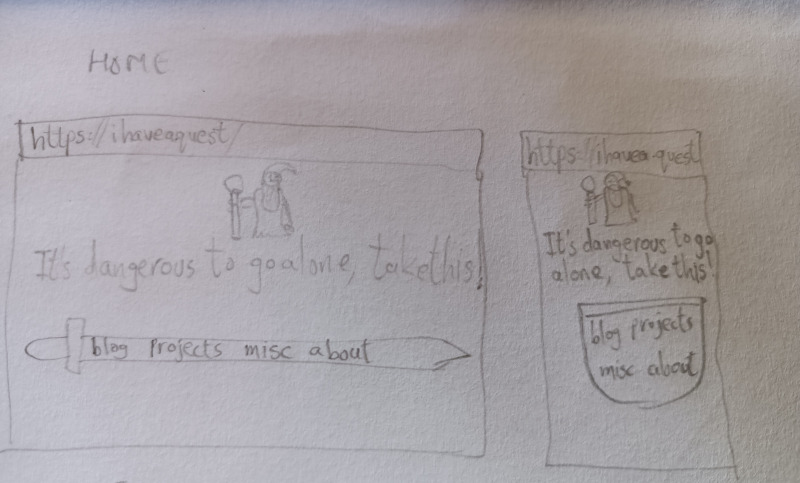 HOME
https://ihaveaquest/
It's dangerous to go alone, take this!
blog projects misc about
https://ihaveaquest
It's dangerous to go
alone, take this!
blog projects
misc about